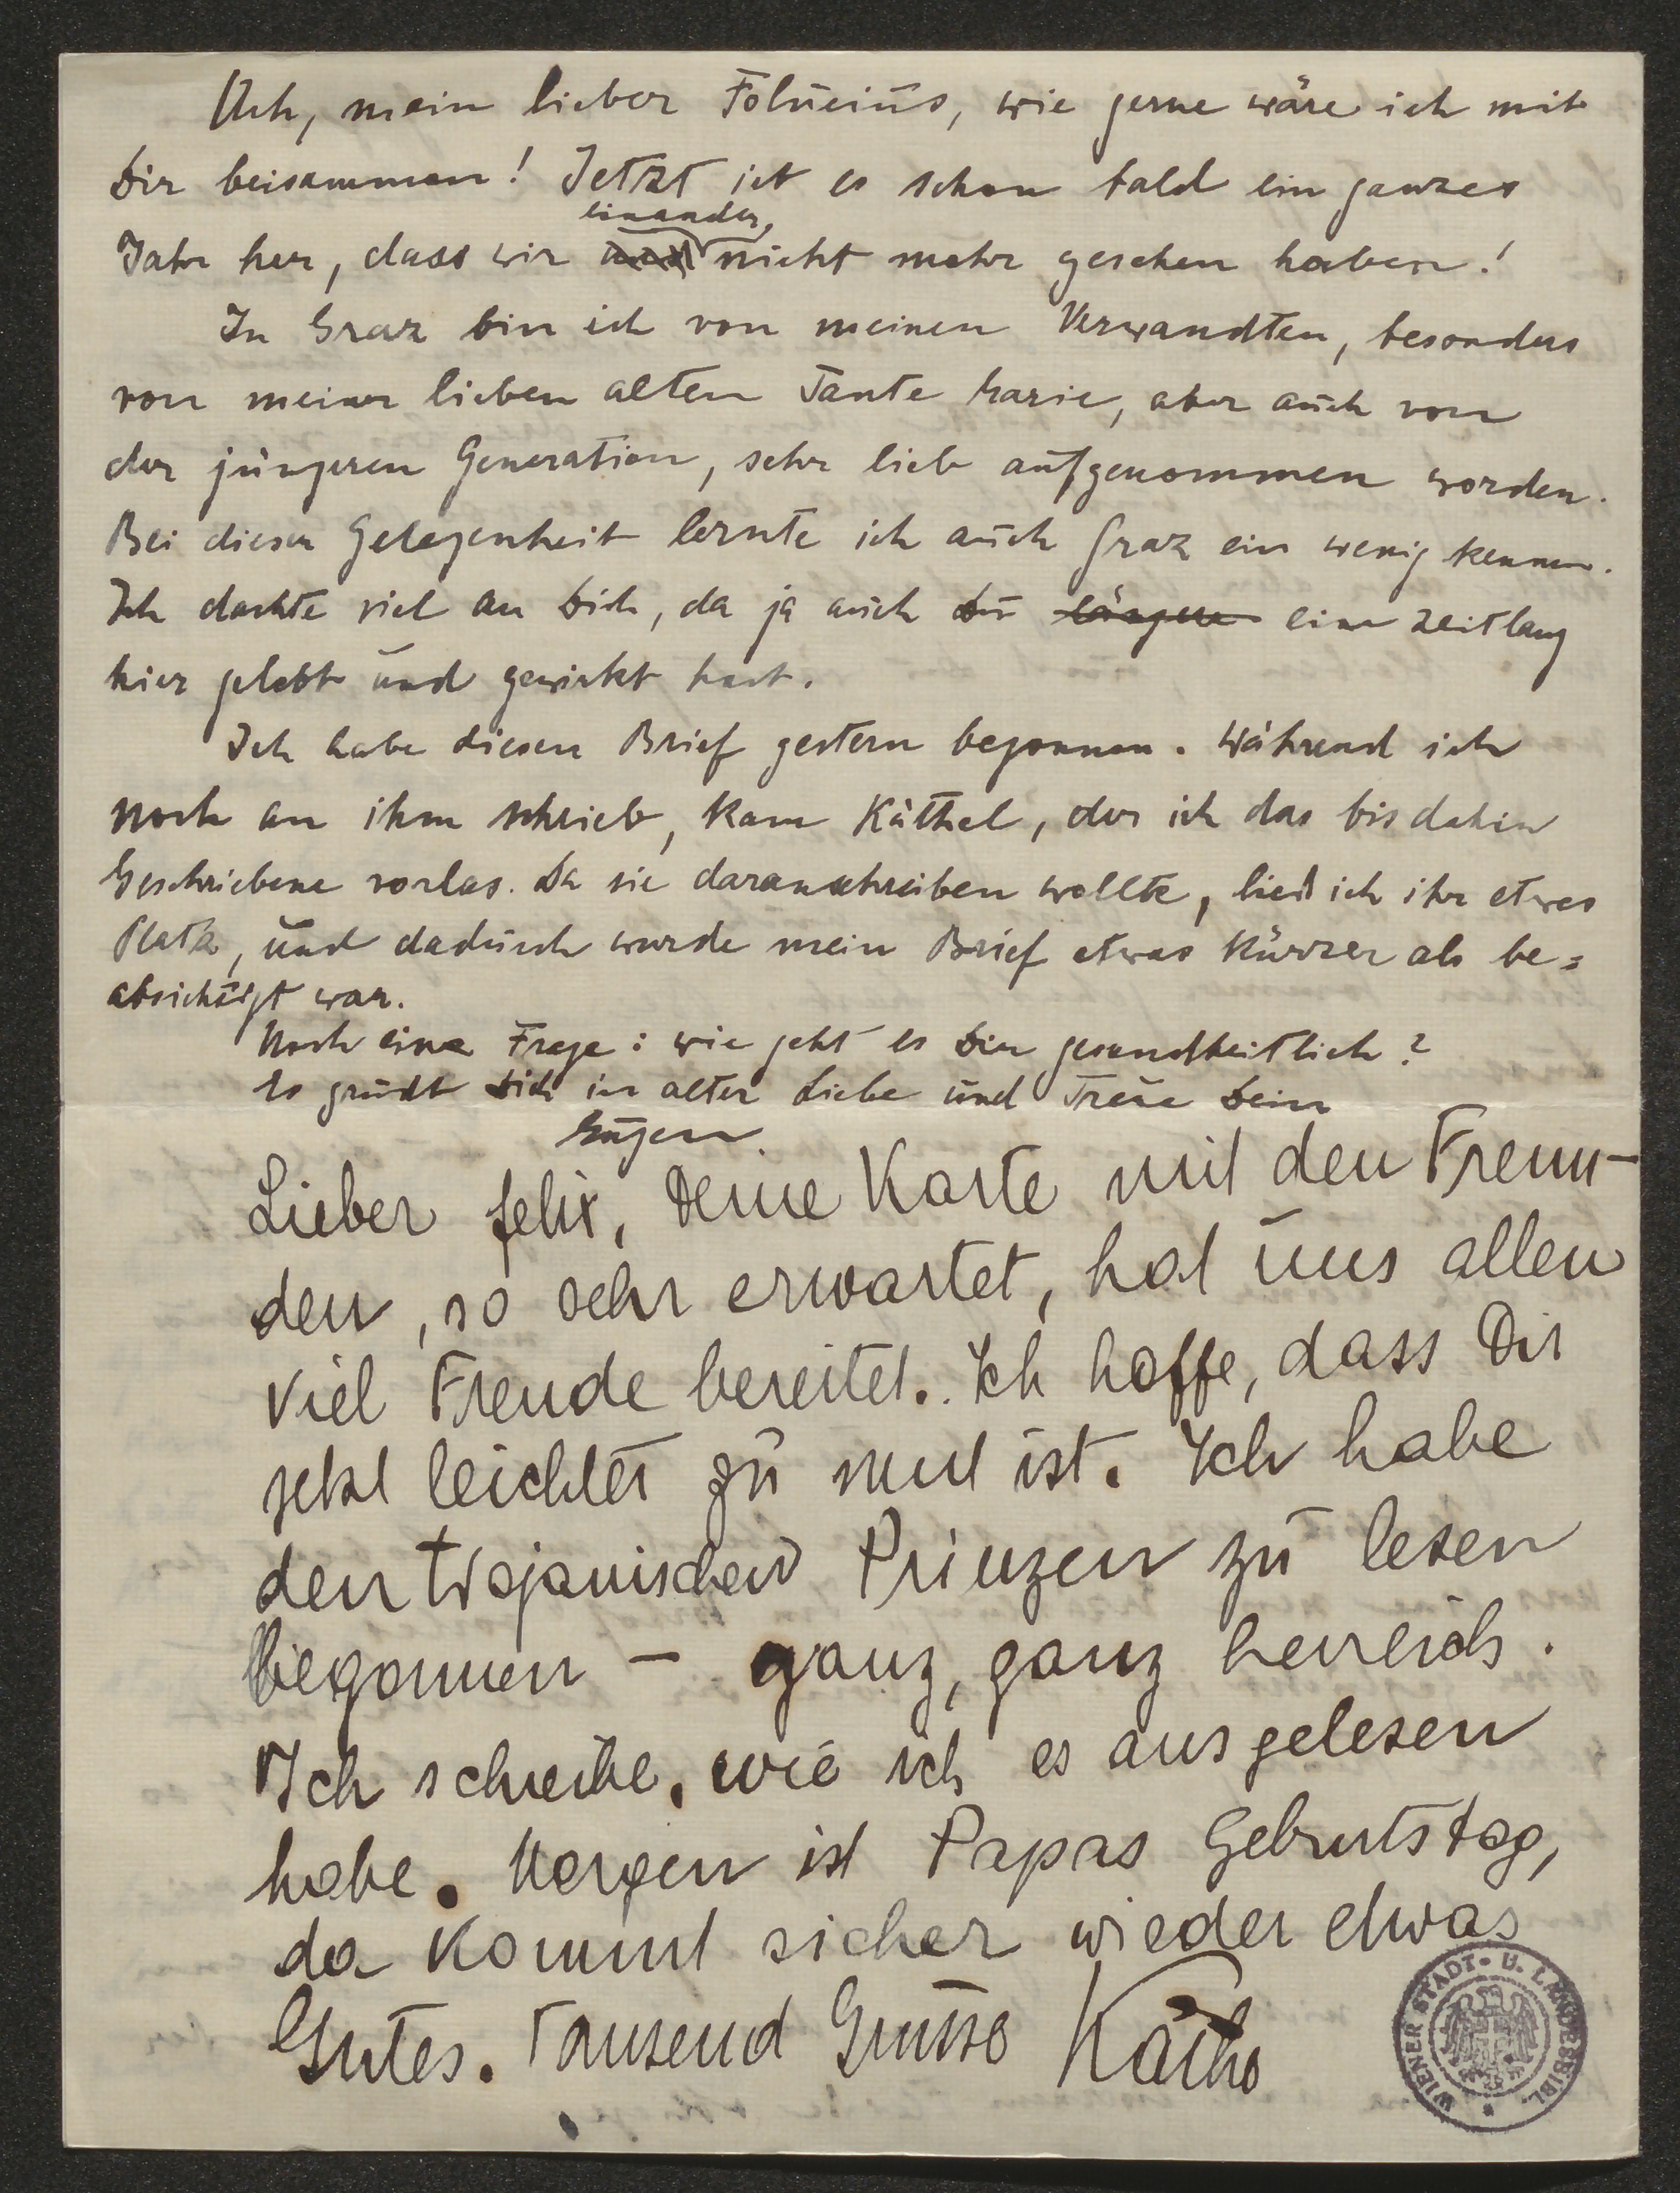 Ach, mein lieber Folneius, wie gerne wäre ich mit
Dir beisammen! Jetzt ist es schon bald ein ganzes
einander
Jahr her, dass wir uns nicht mehr gesehen haben!
In Graz bin ich von meinen Verwandten, besonders
von meiner lieben alten Tante Marie, aber auch von
der jüngeren Generation, sehr lieb aufgenommen worden.
Bei dieser Gelegenheit lernte ich auch Graz ein wenig kennen.
Ich dachte viel an Dich, da ja auch Du längere eine Zeitlang
hier gelebt und gewirkt hast.
Ich habe diesen Brief gestern begonnen. Während ich
noch an ihm schrieb, kam Käthel, der ich das bis dahin
Geschriebene vorlas. Da sie daranschreiben wollte, ließ ich ihr etwas
Platz, und dadurch wurde mein Brief etwas kürzer als be=
absichtigt war.
Noch eine Frage: wie geht es Dir gesundheitlich?
Es grüßt Dich in alter Liebe und Treue Dein
Eugen.
Lieber Felix, Deine Karte mit den Freun-
den, so sehr erwartet, hat uns allen
viel Freude bereitet. Ich hoffe, dass Dir
jetzt leichter zu mut ist. Ich habe
den trojanischen Prinzen zu lesen
begonnen – ganz, ganz herrlich.
Ich schreibe, wie ich es ausgelesen
habe. Morgen ist Papas Geburtstag,
da kommt sicher wieder etwas
Gutes. Tausend Grüsse Käthe
WIENER STADT- U. LANDESBIBL.